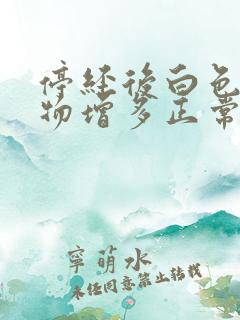 停经后白色
物增多正常
窜萌水
未经同意禁止转载